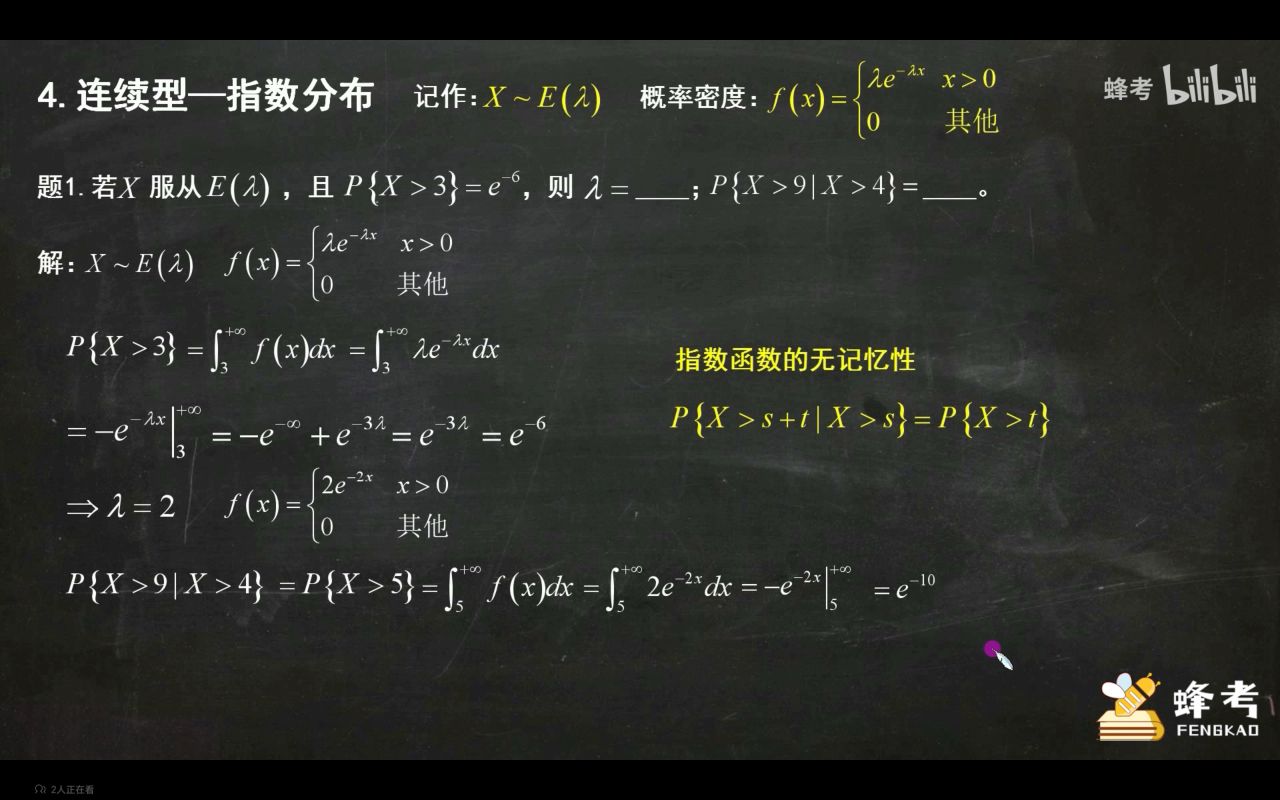 4. 连续型—指数分布 记作: X ~ E(λ) 概率密度: f(x) = { λe^{-λx} x > 0
0 其他
蜂考 bilibili
题1. 若X 服从 E(λ) ，且 P{X > 3} = e^{-6}，则 λ = ____; P{X > 9 | X > 4} = ____。
解: X ~ E(λ) f(x) = { λe^{-λx} x > 0
0 其他
P{X > 3} = ∫_3^{+∞} f(x)dx = ∫_3^{+∞} λe^{-λx}dx
指数函数的无记忆性
= -e^{-λx} |_3^{+∞} = -e^{-∞} + e^{-3λ} = e^{-3λ} = e^{-6}
P{X > s + t | X > s} = P{X > t}
⇒ λ = 2 f(x) = { 2e^{-2x} x > 0
0 其他
P{X > 9 | X > 4} = P{X > 5} = ∫_5^{+∞} f(x)dx = ∫_5^{+∞} 2e^{-2x}dx = -e^{-2x} |_5^{+∞} = e^{-10}
蜂考
FENGKAO
2人正在看